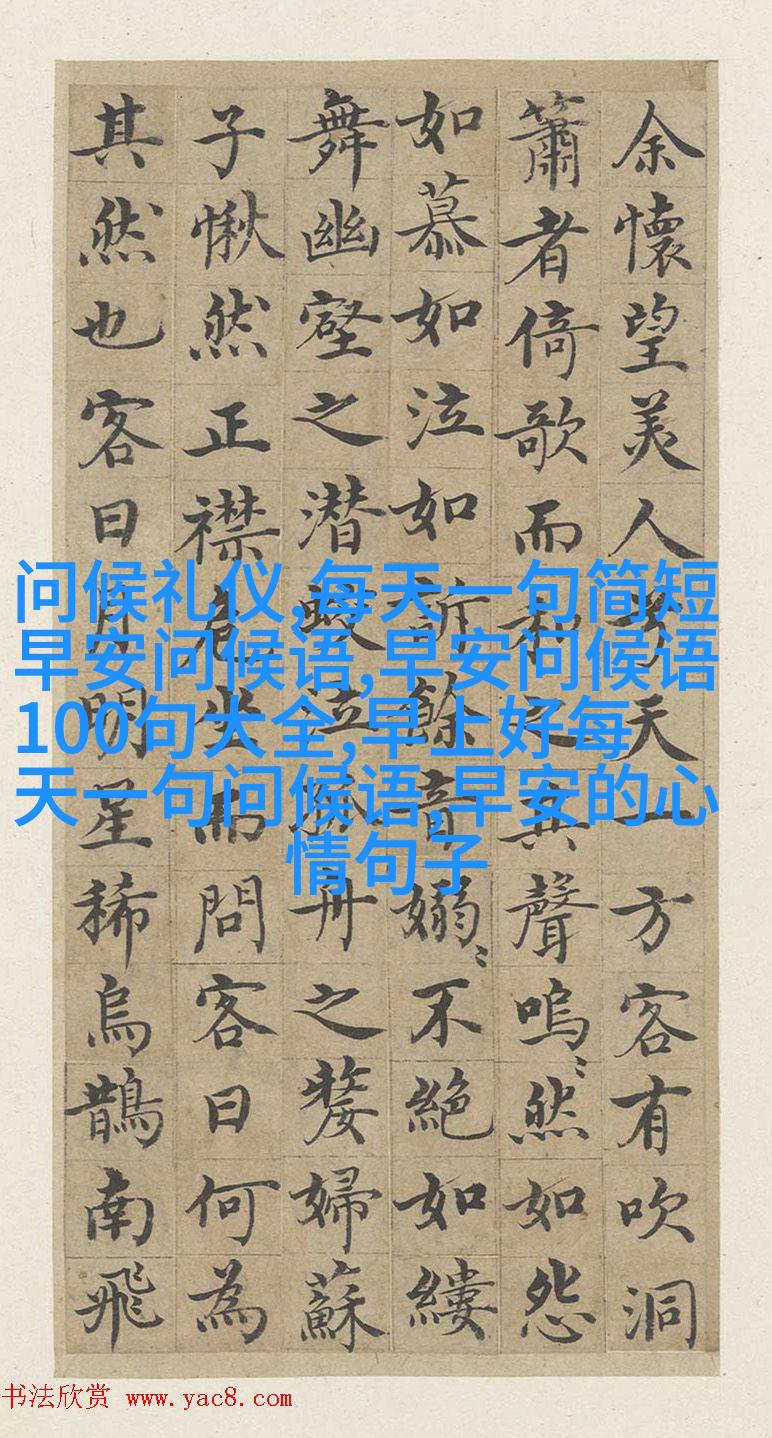 余懷望美人兮天一方客有吹洞
簫者倚歌而和之其聲嗚〻然如怨
如慕如泣如訴餘音嫋〻不絕如縷
舞幽壑之潜蛟泣孤舟之嫠婦蘇
子愀然正襟危坐而問客曰何為
其然也客曰月明星稀烏鵲南飛
问候礼仪,每天一句简短
早安问候语,早安问候语
100句大全,早上好每
天一句问候语,早安的心
情句子
书法欣赏 www.yac8.com